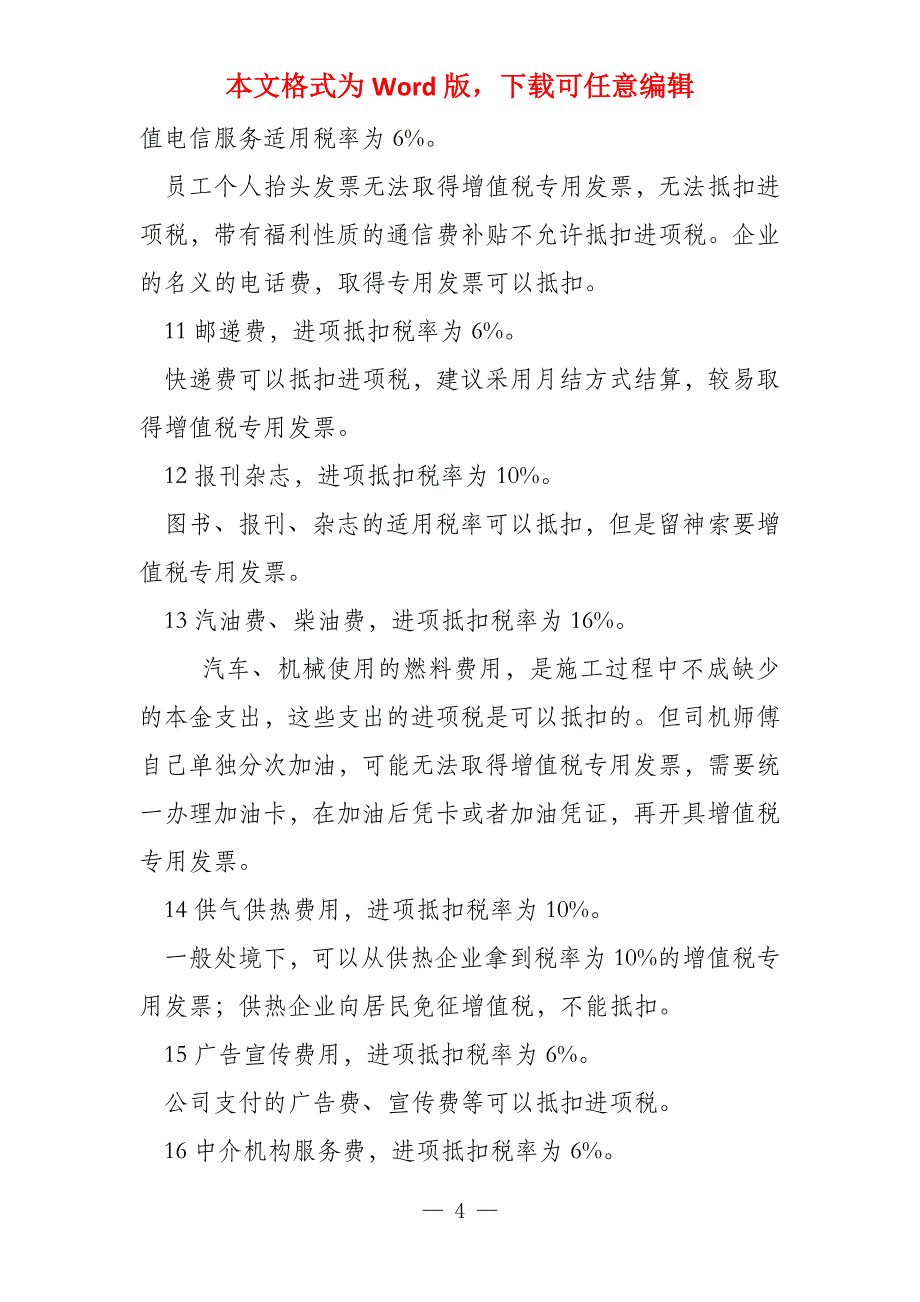 本文格式为 Word 版，下载可任意编辑
值电信服务适用税率为 6%。
员工个人抬头发票无法取得增值税专用发票，无法抵扣进
项税，带有福利性质的通信费补贴不允许抵扣进项税。企业
的名义的电话费，取得专用发票可以抵扣。
11 邮递费，进项抵扣税率为 6%。
快递费可以抵扣进项税，建议采用月结方式结算，较易取
得增值税专用发票。
12 报刊杂志，进项抵扣税率为 10%。
图书、报刊、杂志的适用税率可以抵扣，但是留神索要增
值税专用发票。
13 汽油费、柴油费，进项抵扣税率为 16%。
汽车、机械使用的燃料费用，是施工过程中不成缺少
的本金支出，这些支出的进项税是可以抵扣的。但司机师傅
自己单独分次加油，可能无法取得增值税专用发票，需要统
一办理加油卡，在加油后凭卡或者加油凭证，再开具增值税
专用发票。
14 供气供热费用，进项抵扣税率为 10%。
一般处境下，可以从供热企业拿到税率为 10%的增值税专
用发票；供热企业向居民免征增值税，不能抵扣。
15 广告宣传费用，进项抵扣税率为 6%。
公司支付的广告费、宣传费等可以抵扣进项税。
16 中介机构服务费，进项抵扣税率为 6%。
— 4 —